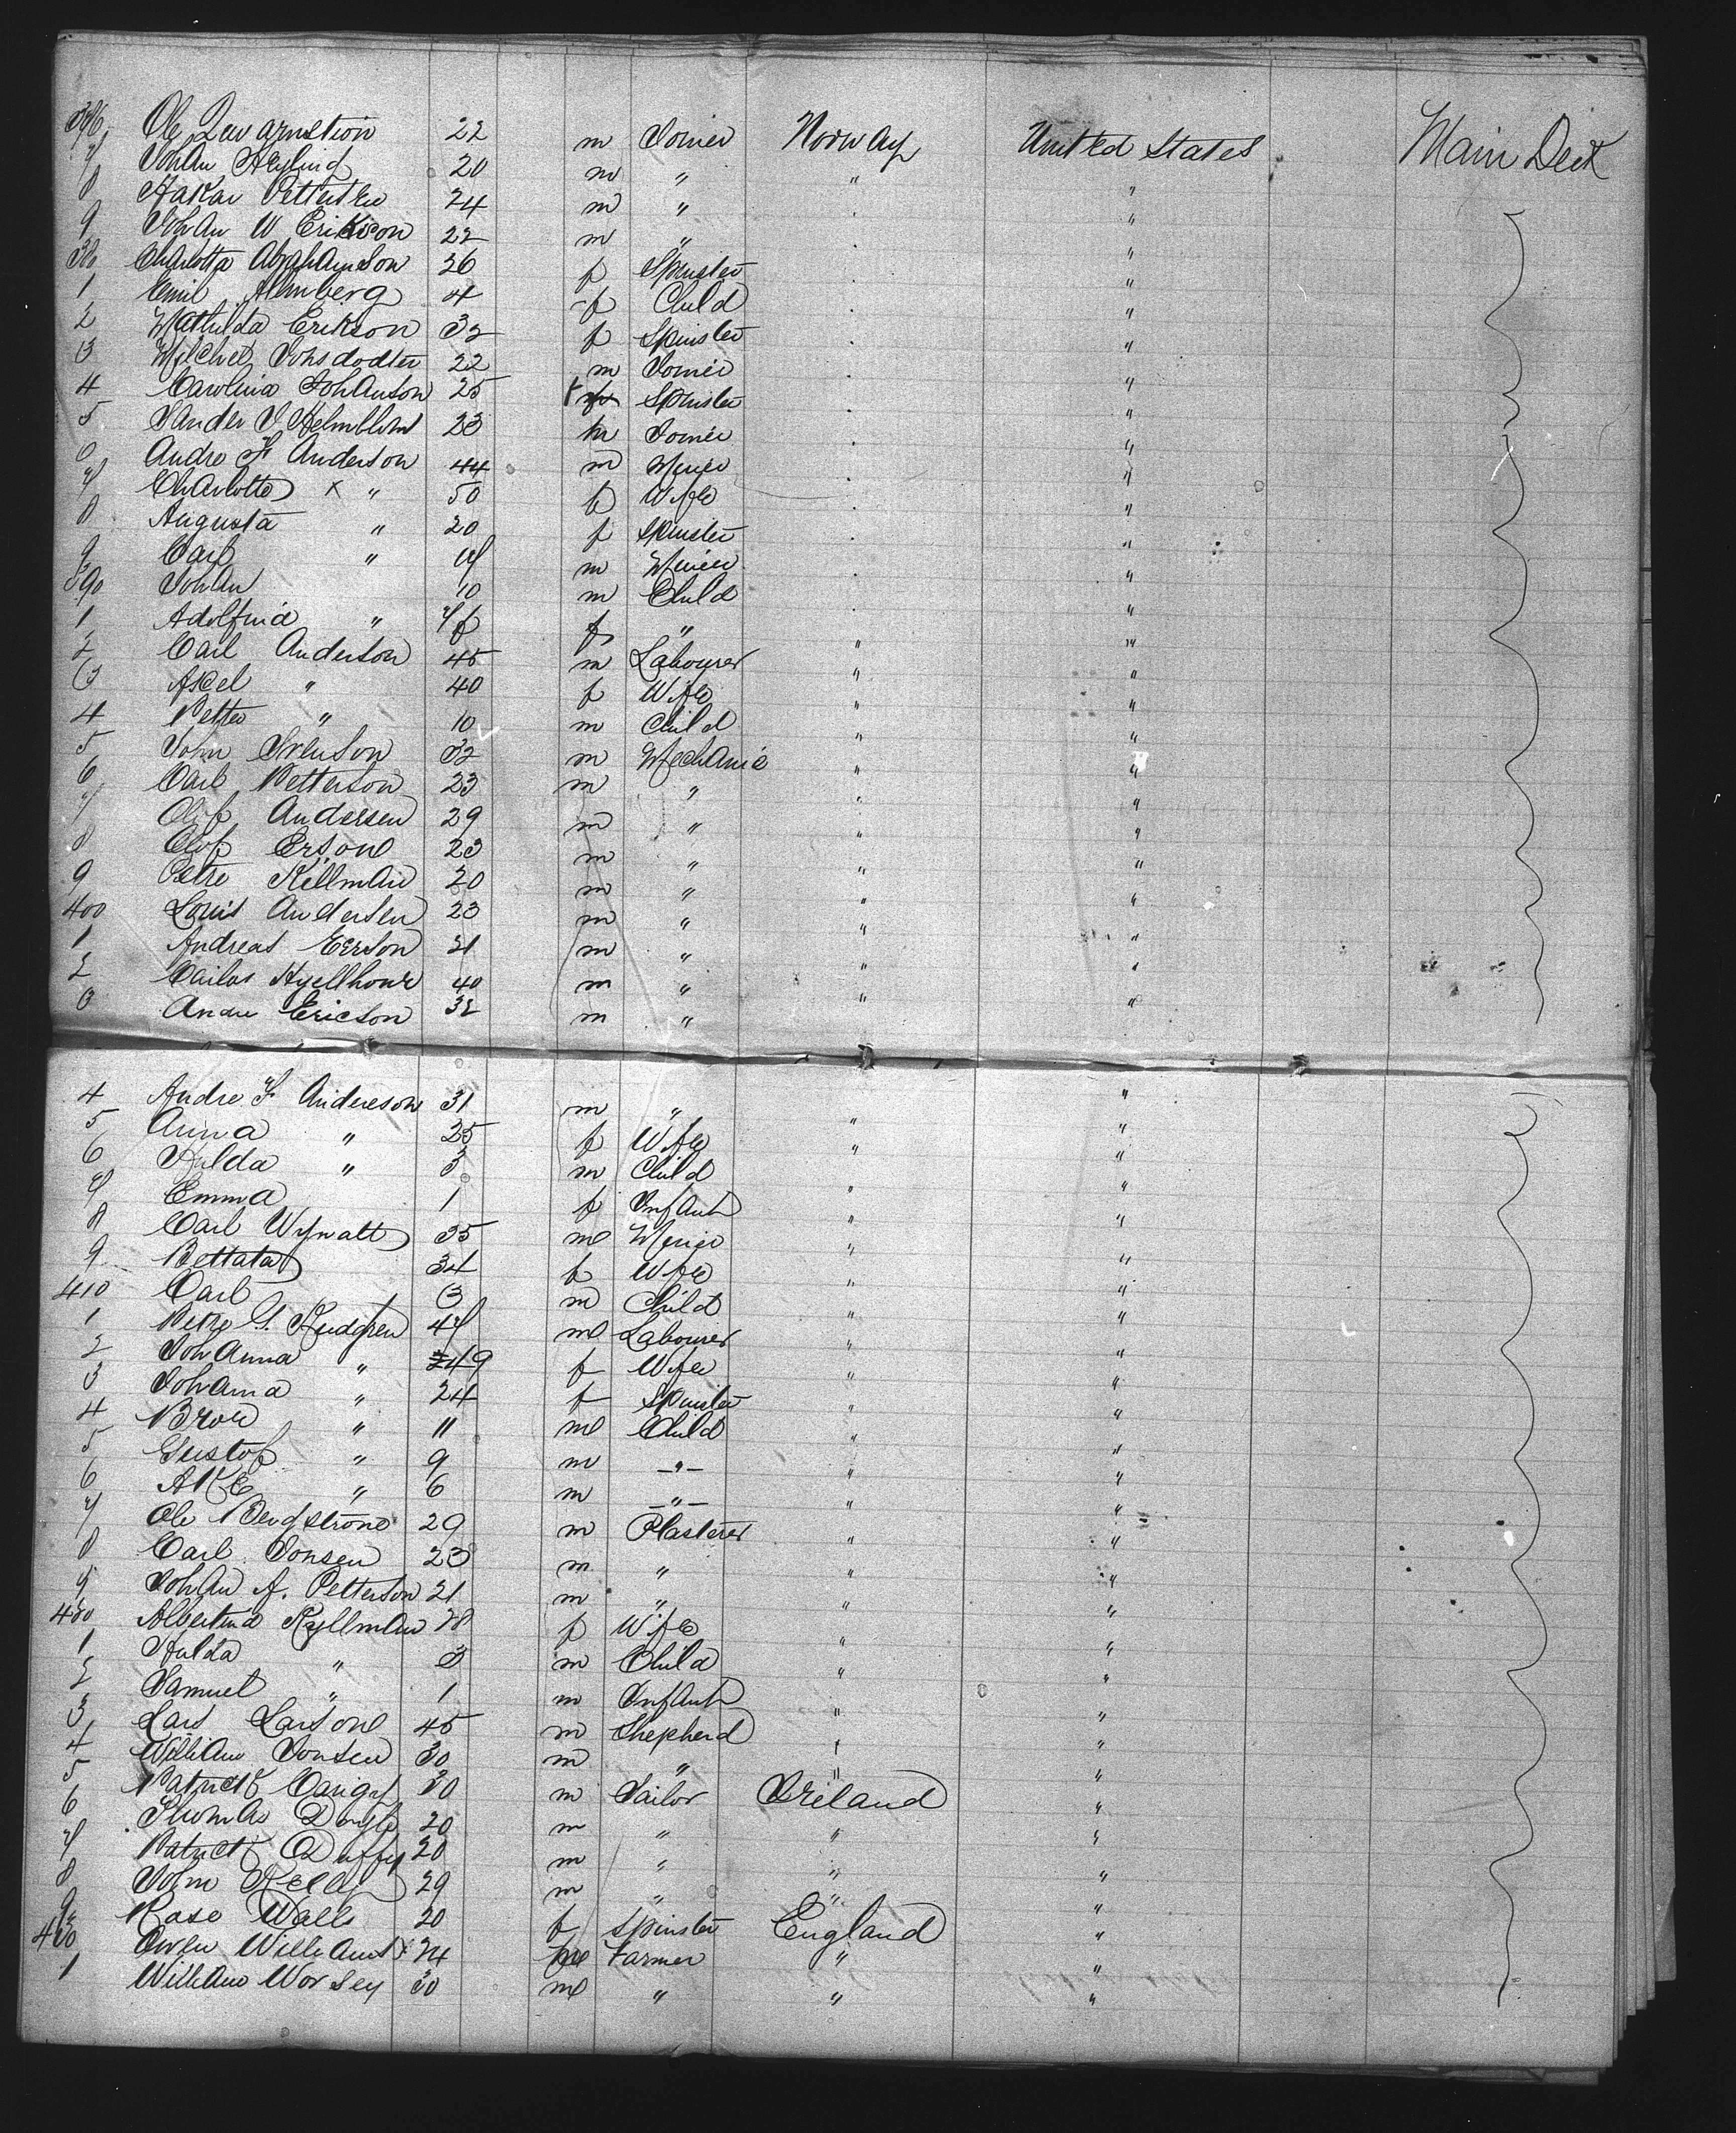 376 Ole 22 m Joiner Norway United States Main Deck
7 Johan 20 m " " "
8 Hakar 24 m " "
9 Johan W Erikson 22 m " "
380 Charlotta Abrahamson 26 f Spinster "
1 Emil Almberg 4 f Child "
2 Mathilda Erikson 32 f Spinster "
3 Johsdodter 22 m Joiner "
4 Carolina Johanson 25 f Spinster "
5 Sander J Helmblom 23 m Joiner "
6 Andre F Anderson 44 m Miner "
7 Charlotte x " 50 f Wife "
8 Augusta " 20 f Spinster "
9 Carl " 17 m Miner "
390 Johan 10 m Child "
1 Adolfina " 7 f f " "
2 Carl Anderson 45 m Labourer " "
3 Axel " 40 f Wife " "
4 Petter " 10 m Child " "
5 John Svenson 32 m Mechanic " "
6 Carl Petterson 23 m " " "
7 Olof Andersen 29 m " " "
8 Olof Ersone 23 m " " "
9 Petre Killman 20 m " " "
400 Louis Andersen 23 m " " "
1 Andreas Eerson 21 m " " "
2 Carlos 40 m " " "
3 Andre Ericson 32 m " " "
4 Andre F Andereson 31 m " " "
5 Anna " 25 f Wife " "
6 Hulda " 3 m Child "
7 Emma 1 f Infant " "
8 Carl Wynatt 35 m Miner " "
9 Bettata 34 f Wife " "
410 Carl 3 m Child " "
1 Petre G. 47 m Labourer " "
2 Johanna " 49 f Wife " "
3 Johanna " 24 f Spinster " "
4 Brow " 11 m Child " "
5 Gustof " 9 m -"- " "
6 AKE " 6 m -"- " "
7 Ole Bengstrone 29 m Plasterer " "
8 Carl Jonsen 23 m " " "
9 Johan A. Petterson 21 m " " "
420 Albertina Kyllman 28 f Wife " "
1 Hulda " 3 m Child " "
2 Samuel " 1 m Infant " "
3 Lars Larsone 45 m Shepherd " "
4 William Jonsen 30 m " " "
5 Patrick 30 m Tailor Ireland "
6 Thomas Doyle 20 m " " "
7 Patrick Duffy 20 m " " "
8 John Kelly 29 m " " "
9 Rose Walls 20 f Spinster England "
430 Owen Williams 24 m Farmer " "
1 William Worsey 30 m " " "